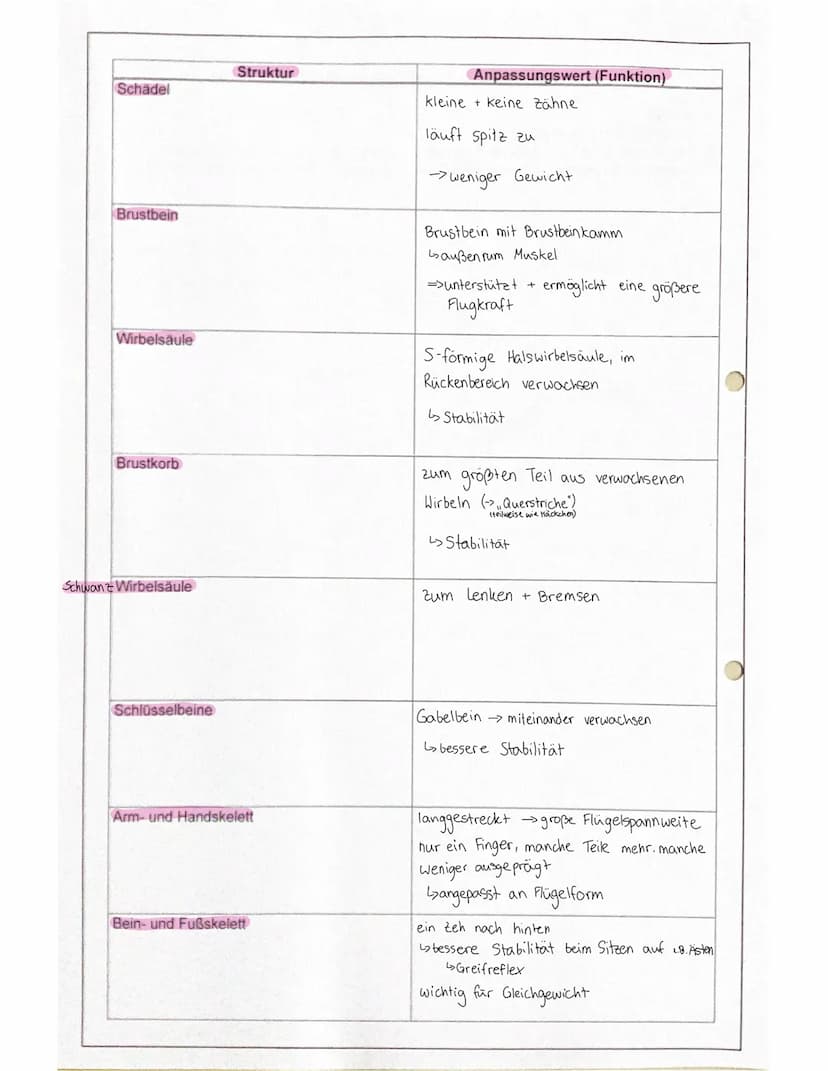 Struktur
Anpassungswert (Funktion)
Schädel
kleine + keine Zähne
läuft spitz zu
→ weniger Gewicht
Brustbein
Brustbein mit Brustbeinkamm
↳ außenrum Muskel
⇒ unterstützt + ermöglicht eine größere
Flugkraft
Wirbelsäule
S-förmige Halswirbelsäule, im
Rückenbereich verwachsen
↳ Stabilität
Brustkorb
zum größten Teil aus verwachsenen
Wirbeln (→ „Querstriche")
(teilweise wie Häckchen)
↳ Stabilität
Schwanz Wirbelsäule
zum Lenken + Bremsen
Schlüsselbeine
Gabelbein → miteinander verwachsen
↳ bessere Stabilität
Arm- und Handskelett
langgestreckt → große Flügelspannweite
nur ein Finger, manche Teile mehr. manche
weniger ausgeprägt
↳ angepasst an Flügelform
Bein- und Fußskelett
ein Zeh nach hinten
↳ bessere Stabilität beim Sitzen auf z.B. Ästen
↳ Greifreflex
wichtig für Gleichgewicht